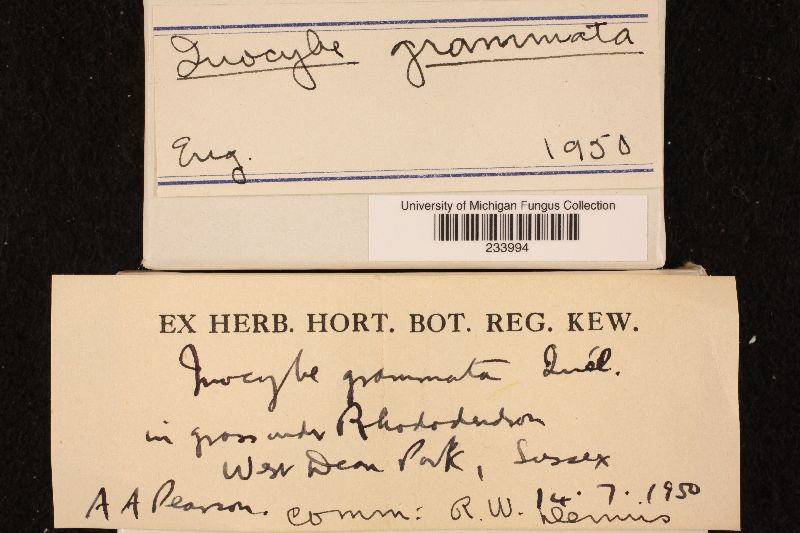 Inocybe grammata
Eng. 1950
University of Michigan Fungus Collection
233994
EX HERB. HORT. BOT. REG. KEW.
Inocybe grammata Quél.
in grass under Rhododendron
West Dean Park, Sussex
A A Pearson. 14. 7. 1950
comm: R. W. Dennis